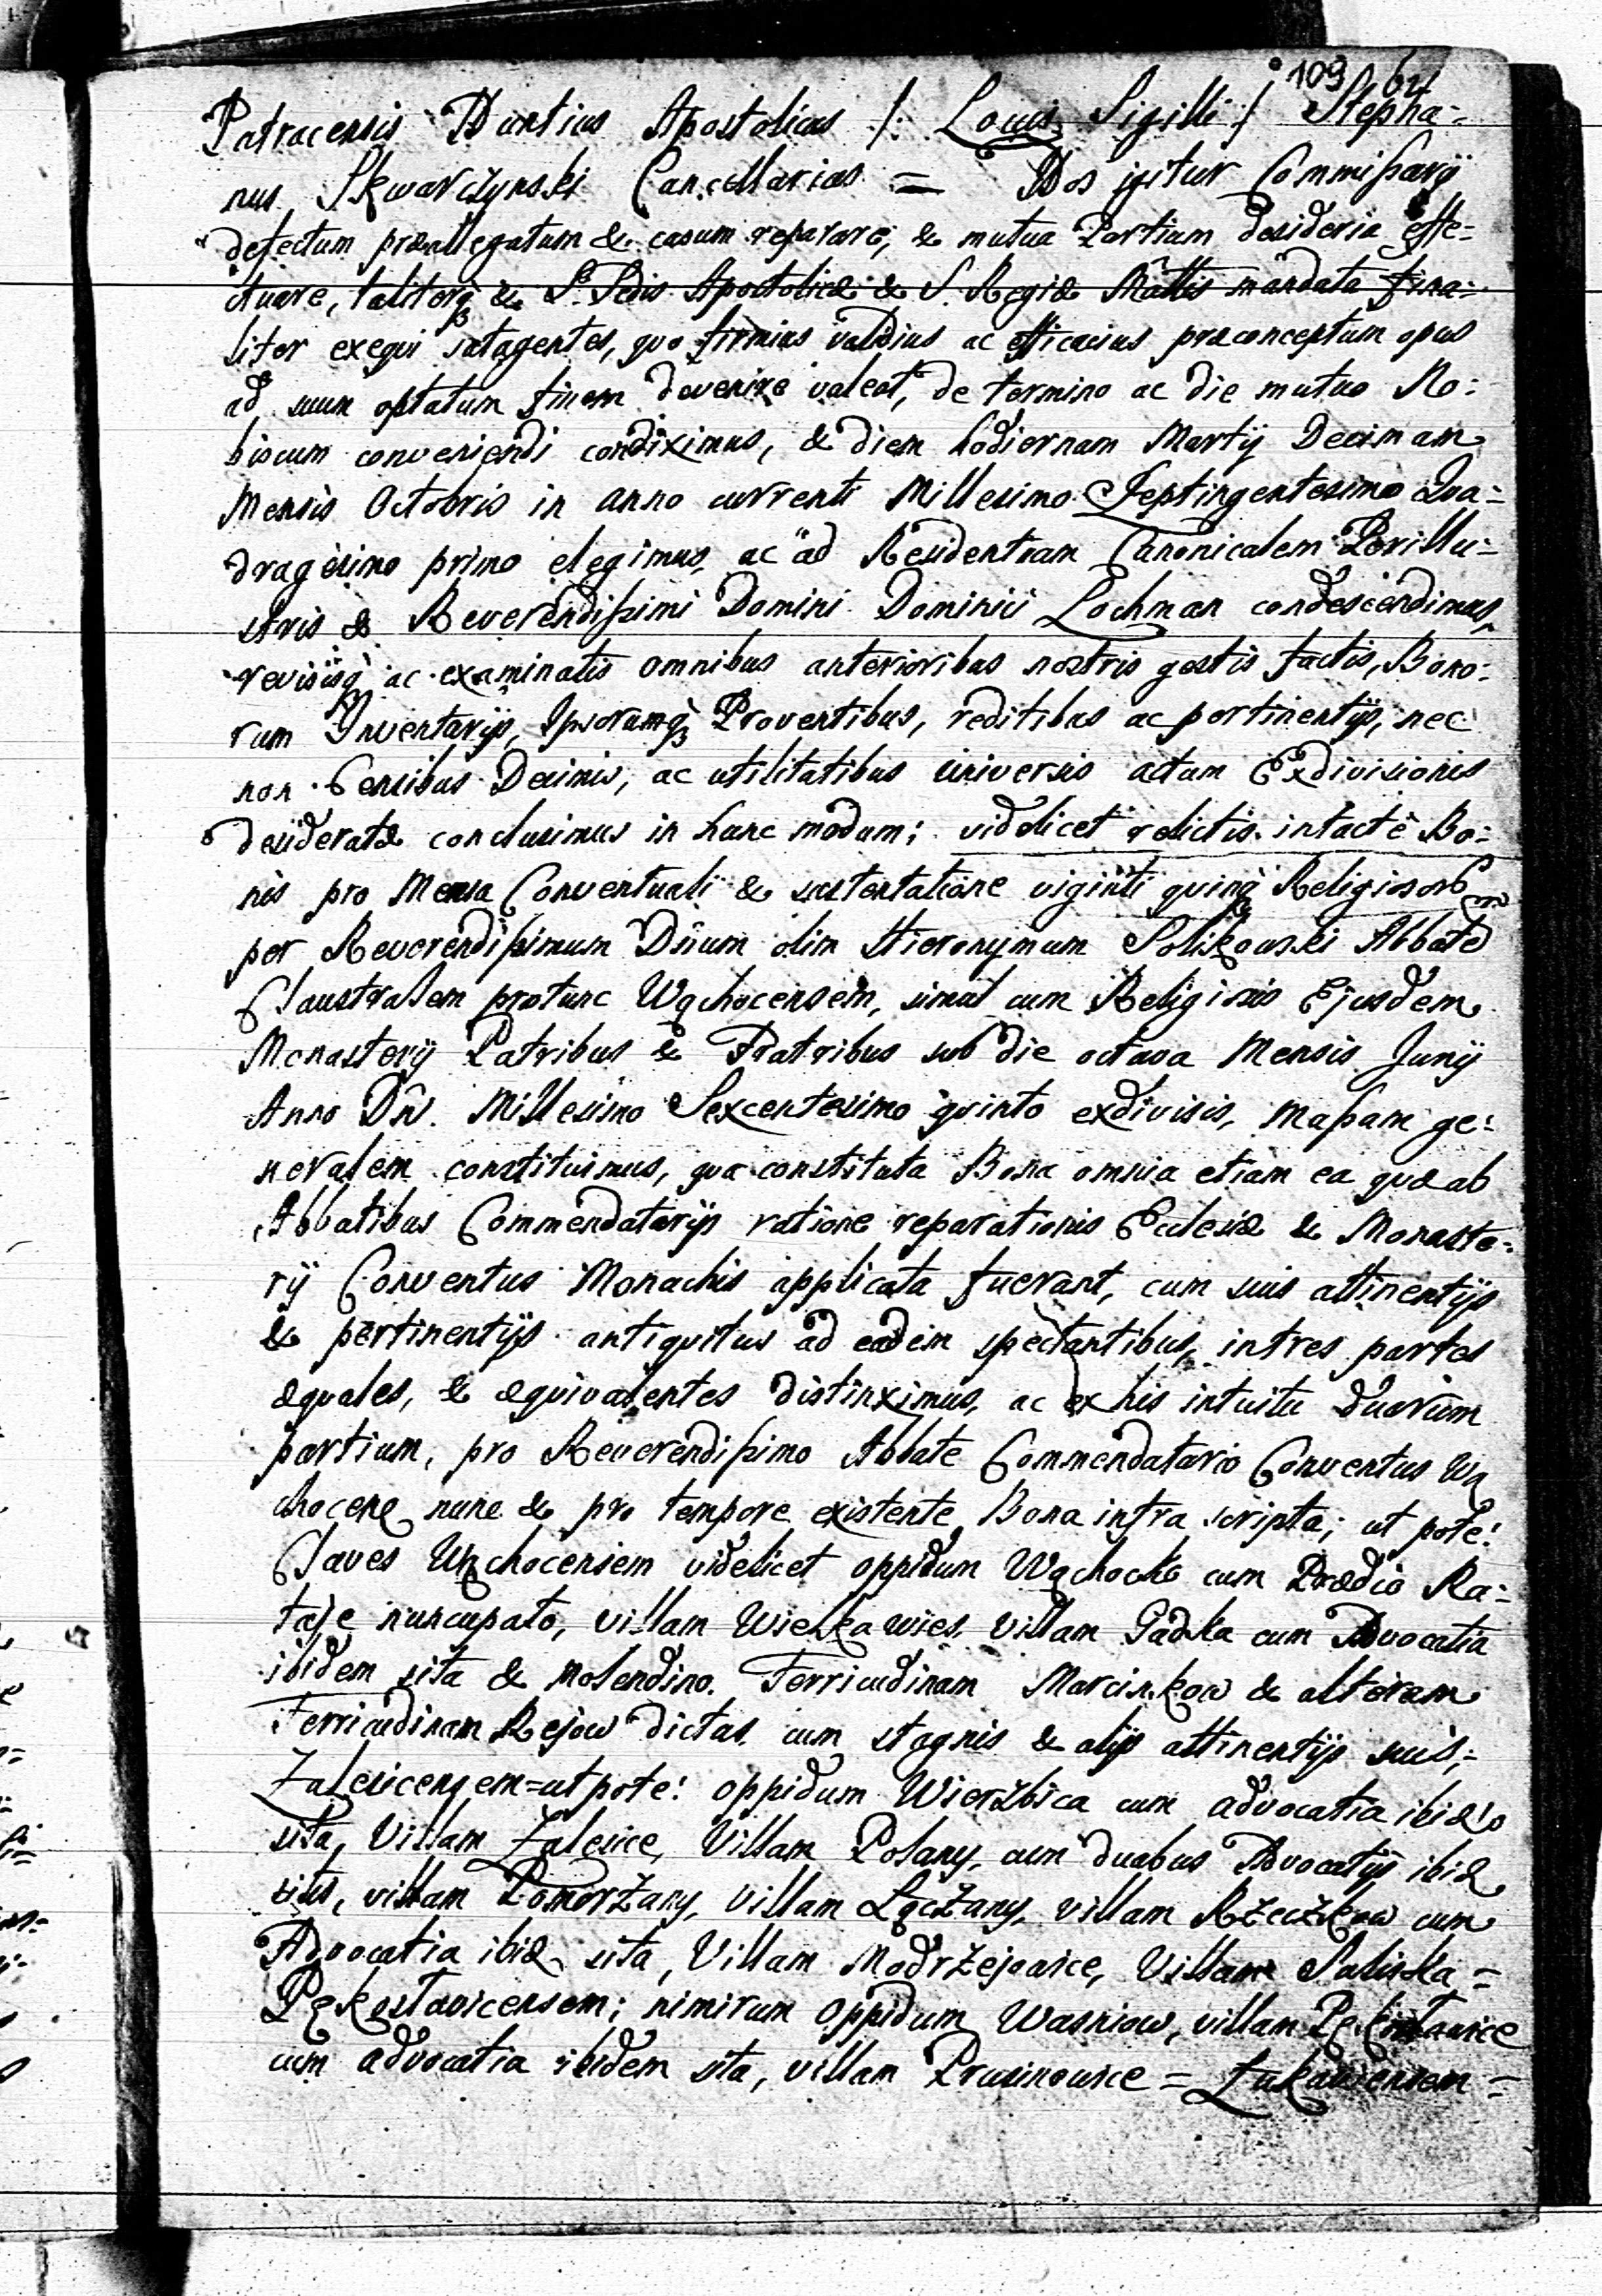 109 64
Patracensis Nuntius Apostolicus /: Locus Sigilli :/ Stepha=
nus Skwarczynski Cancellarius = Nos igitur Commissarij
defectum præallegatum & casum reparare, & mutua Partium desideria effe=
ctuare, taliterq & S. Sedis Apostolicæ & S. Regiæ Mattis mandata fina=
liter exequi satagentes, quo firmius validius ac efficacius præconceptum opus
ad suum optatum finem devenire valeat, de termino ac die mutuo No=
biscum conveniendi condiximus, & diem hodiernam Martij Decimam
Mensis Octobris in anno currenti Millesimo Septingentesimo Qua=
dragesimo primo elegimus, ac ad Residentiam Canonicalem Perillu=
stris & Reverendissimi Domini Dominici Lochman condescendimus,
revisisq ac examinatis omnibus anterioribus nostris gestis factis, Bono=
rum Inventarijs, Ipsorumq Proventibus, reditibus ac pertinentijs, nec
non Censibus Decimis, ac utilitatibus universis actum Exdivisionis
desideratæ conclusimus in hunc modum; videlicet relictis intactè Bo=
nis pro Mensa Conventuali & sustentatione viginti quinq Religiosorum
per Reverendissimum Dnum olim Hieronymum Polikowski Abbatē
Claustralem protunc Wąchocensem, simul cum Religiosis Ejusdem
Monasterij Patribus & Fratribus sub die octava Mensis Junij
Anno Dni. Millesimo Sexcentesimo quinto exdivisis, Massam ge=
neralem constituimus, qua constituta Bona omnia etiam ea quæ ab
Abbatibus Commendatarijs ratione reparationis Ecclesiæ & Monaste=
rij Conventus Monachis applicata fuerant, cum suis attinentijs
& pertinentijs antiquitus ad eadem spectantibus, in tres partes
æquales, & æquivalentes distinximus, ac ex his intuitu duarum
partium, pro Reverendissimo Abbate Commendatario Conventus Wą
chocen nunc & pro tempore existente Bona infra scripta; ut pote:
Claves Wąchocensem videlicet oppidum Wąchocko cum Prædio Ra=
taje nuncupato, villam Wielka wies, villam Gadka cum Advocatia
ibidem sita & molendino. Ferricudinam Marcinkow & alteram
Ferricudinam Rejow dictas cum stagnis & alijs attinentijs suis;
Zalesicensem = ut pote: oppidum Wierzbica cum advocatia ibid
sita, Villam Zalesice, Villam Polany, cum duabus Advocatijs ibid
sitis, villam Pomorzany, Villam Łączany, villam Rzeczkow cum
Advocatia ibid sita, Villam Modrzejowice, Villam Suliska =
Pękoslavicensem; nimirum oppidum Wasniow, villam Pękoslawice
cum advocatia ibidem sita, villam Prusinowice = Łukaviensem =